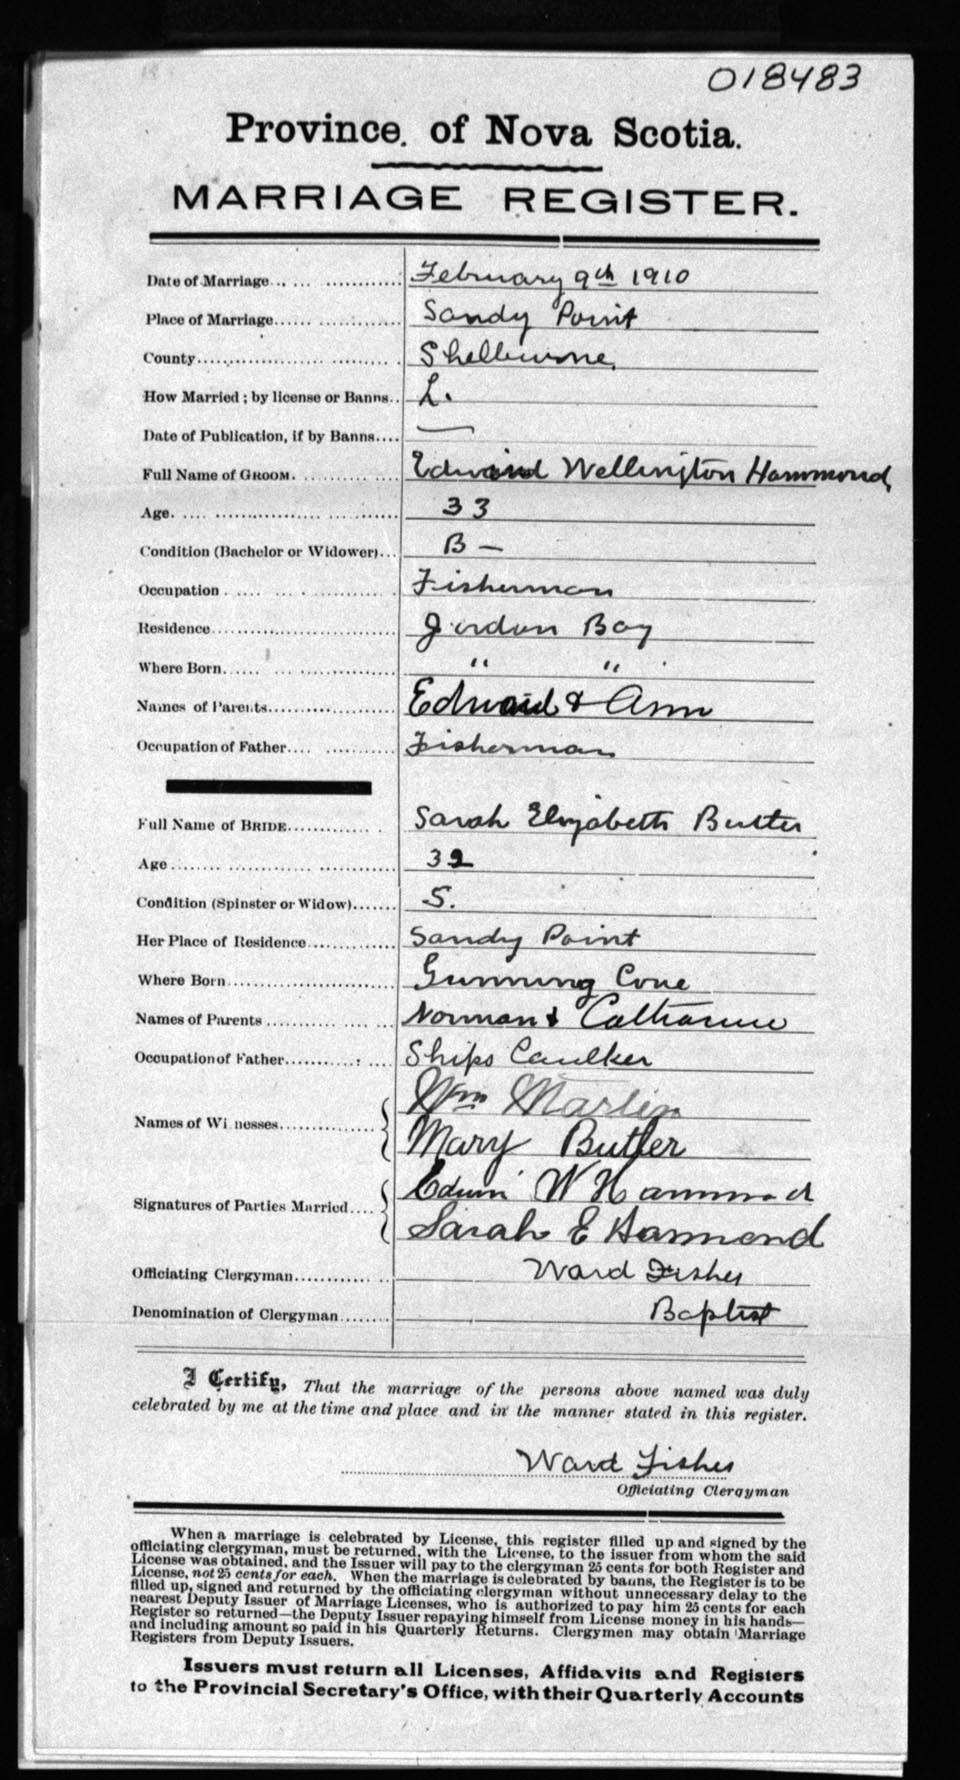 018483
Province of Nova Scotia.
MARRIAGE REGISTER.
Date of Marriage February 9th 1910
Place of Marriage Sandy Point
County Shelburne
How Married; by license or Banns L.
Date of Publication, if by Banns —
Full Name of GROOM Wellington Hammond
Age 33
Condition (Bachelor or Widower) B —
Occupation Fisherman
Residence Jordan Bay
Where Born " "
Names of Parents Edward & Ann
Occupation of Father Fisherman
Full Name of BRIDE Sarah Elizabeth Butler
Age 32
Condition (Spinster or Widow) S.
Her Place of Residence Sandy Point
Where Born Gunning Cove
Names of Parents Norman & Catharine
Occupation of Father Ships Caulker
Names of Witnesses Wm Martin
Mary Butler
Signatures of Parties Married Edwin W Hammond
Sarah E Hammond
Officiating Clergyman Ward Fisher
Denomination of Clergyman Baptist
I Certify, That the marriage of the persons above named was duly
celebrated by me at the time and place and in the manner stated in this register.
Ward Fisher
Officiating Clergyman
When a marriage is celebrated by License, this register filled up and signed by the
officiating clergyman, must be returned, with the License, to the issuer from whom the said
License was obtained, and the Issuer will pay to the clergyman 25 cents for both Register and
License, not 25 cents for each. When the marriage is celebrated by banns, the Register is to be
filled up, signed and returned by the officiating clergyman without unnecessary delay to the
nearest Deputy Issuer of Marriage Licenses, who is authorized to pay him 25 cents for each
Register so returned—the Deputy Issuer repaying himself from License money in his hands—
and including amount so paid in his Quarterly Returns. Clergymen may obtain Marriage
Registers from Deputy Issuers.
Issuers must return all Licenses, Affidavits and Registers
to the Provincial Secretary's Office, with their Quarterly Accounts